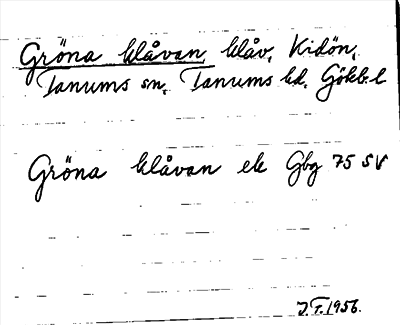 Gröna klåvan, klåv, Kidön,
Tanums sn, Tanums hd, Göbb. l
Gröna klåvan ek Gbg 75 SV
J.T. 1956.